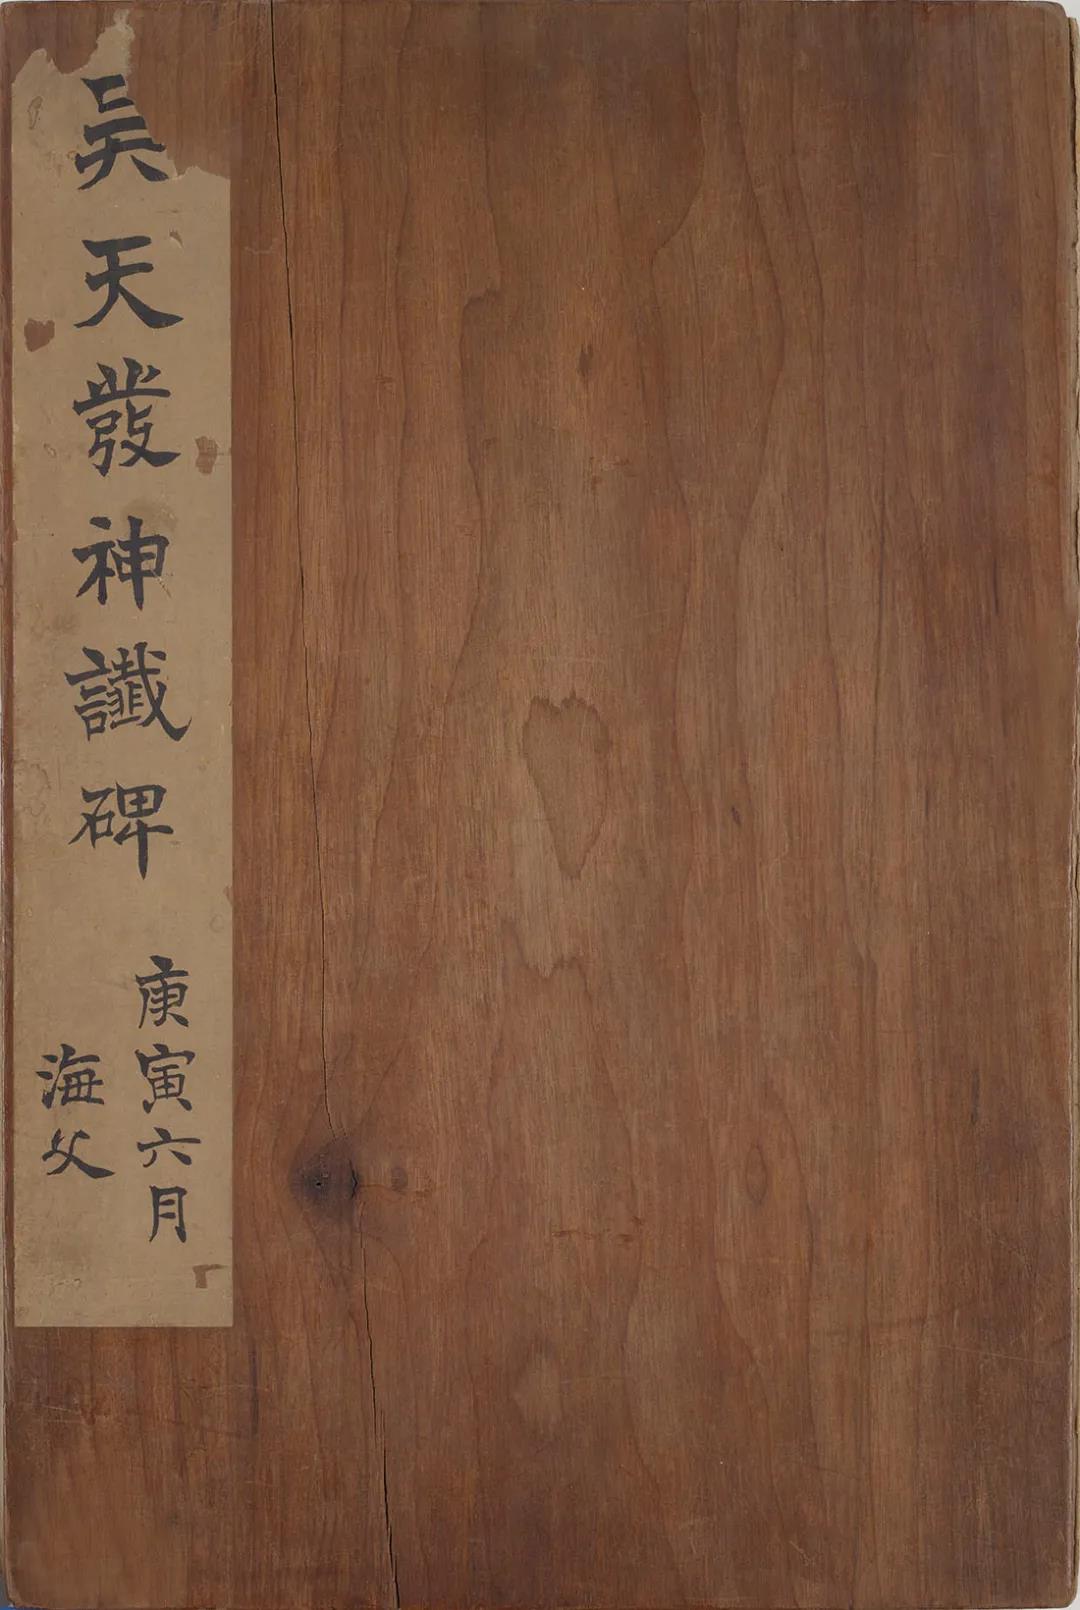 吳天發神讖碑
庚寅六月
海父